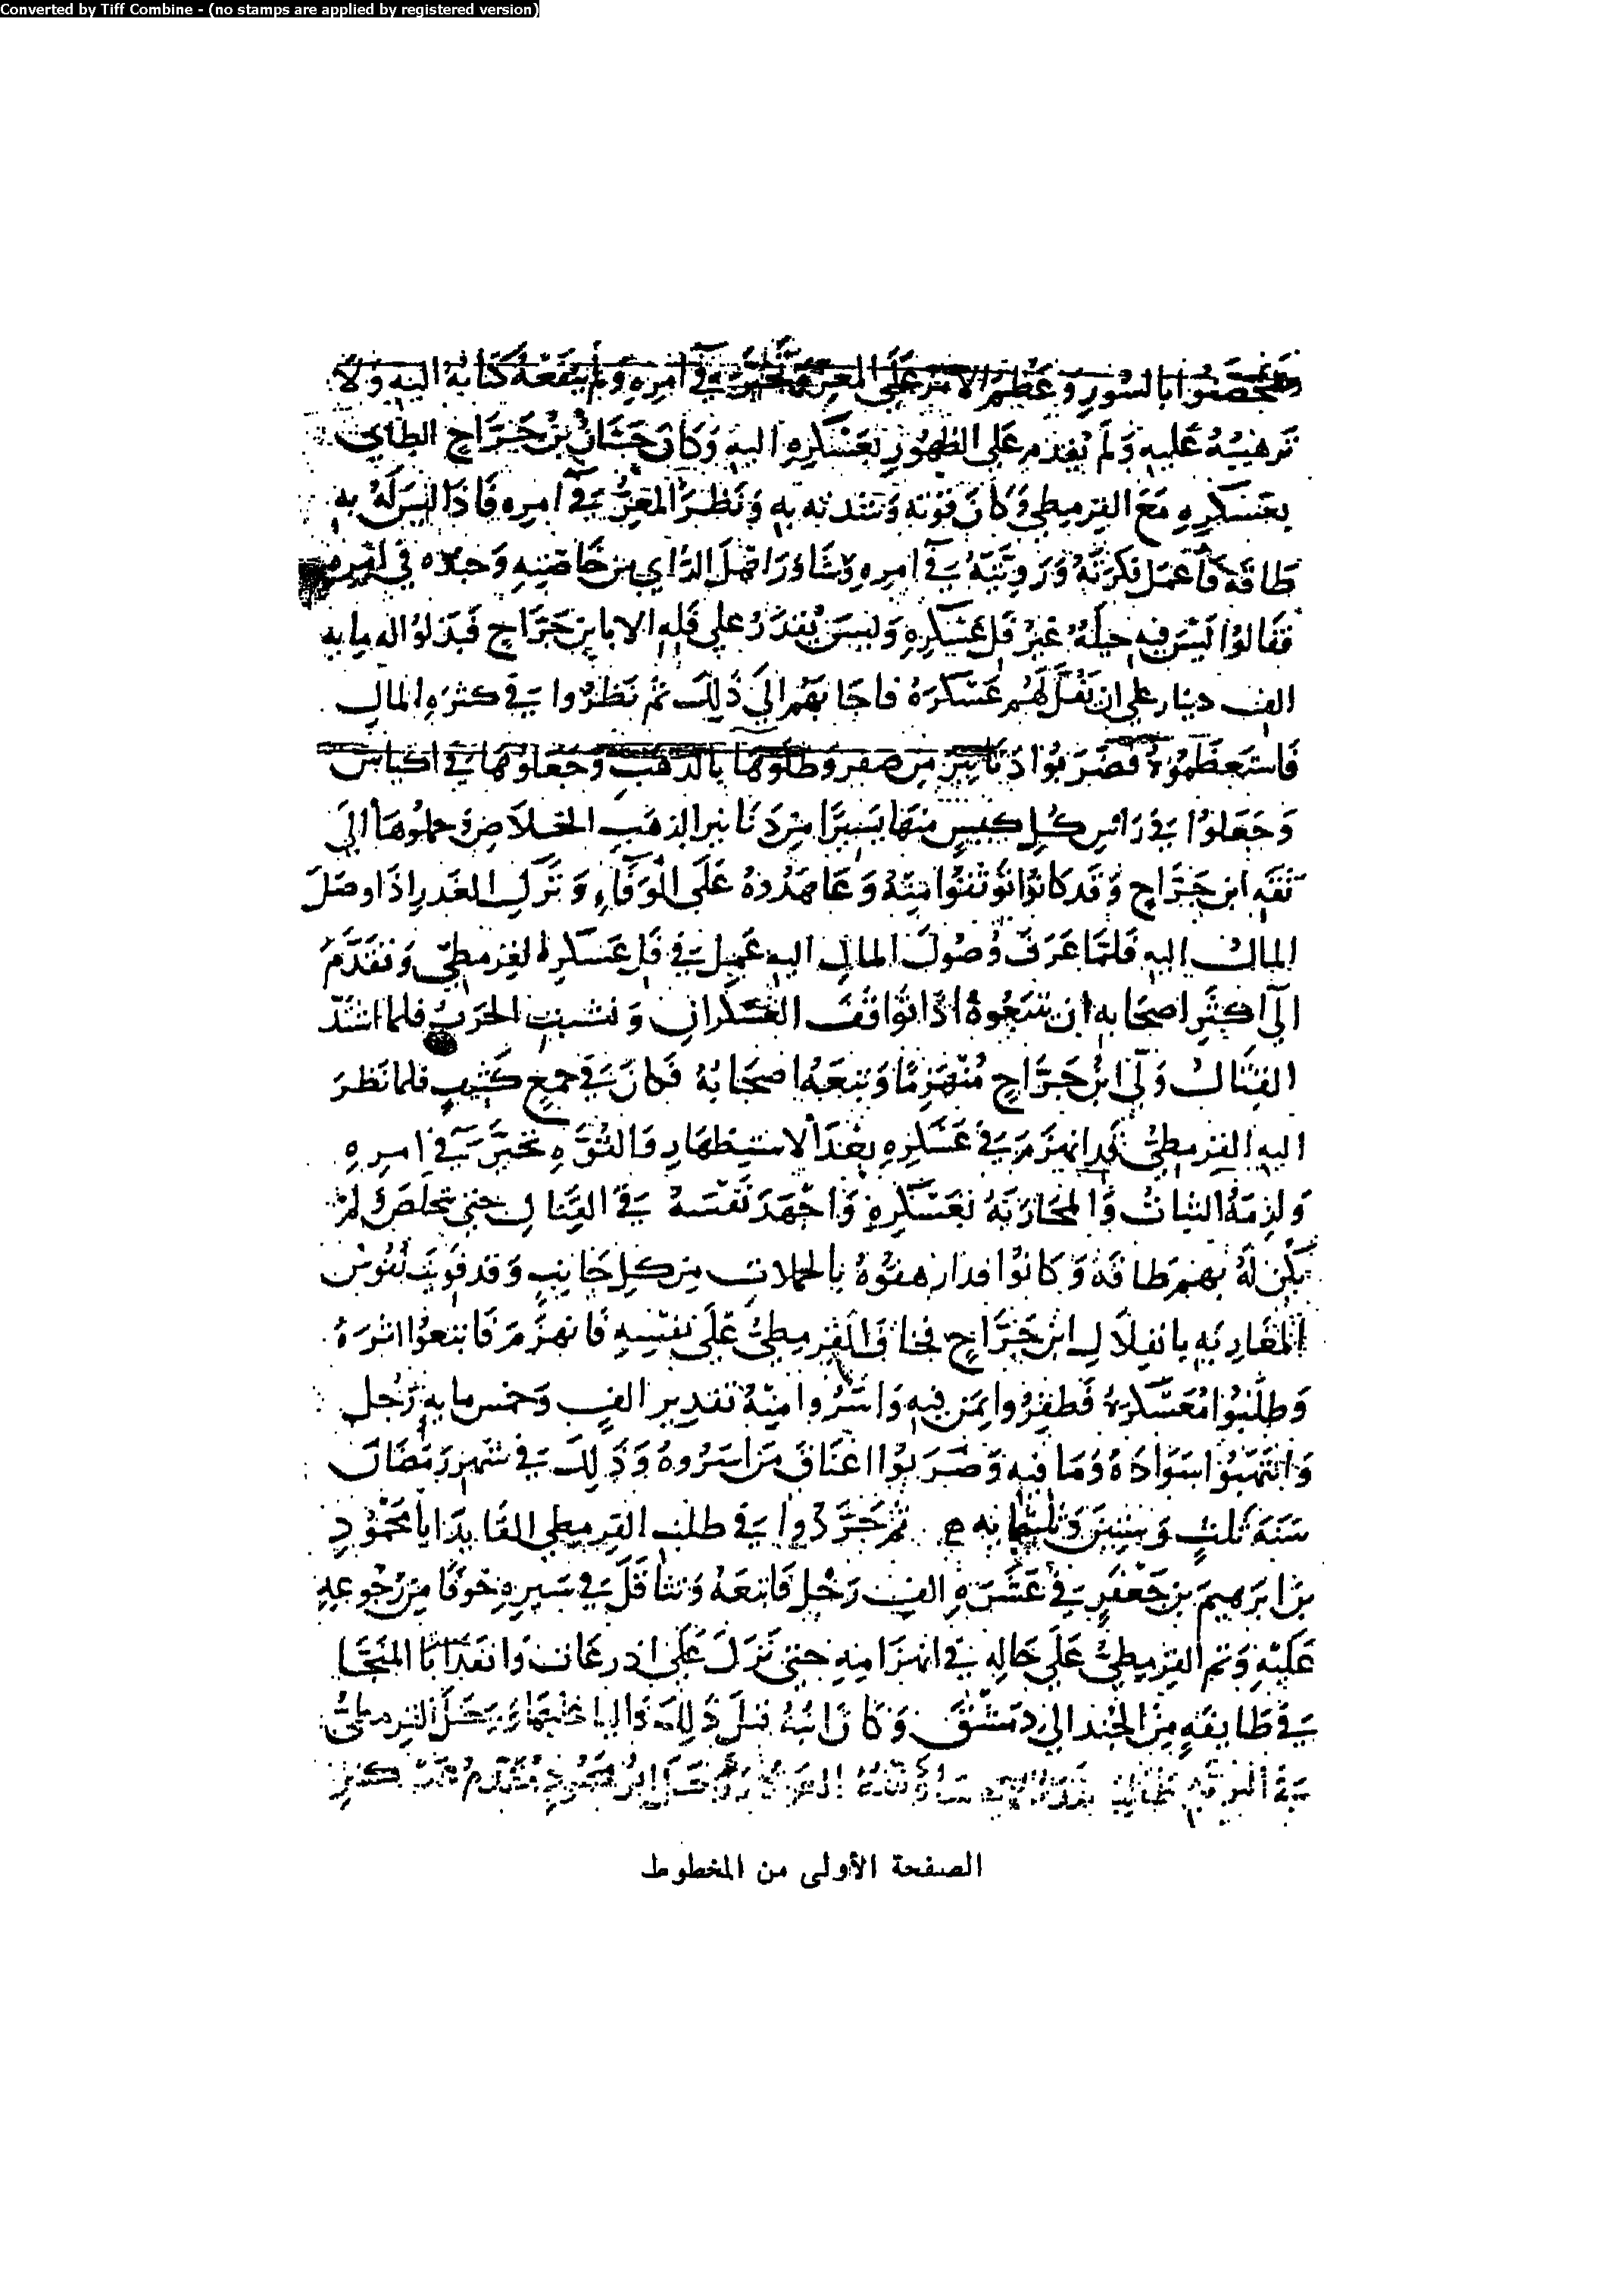 Converted by Tiff Combine - (no stamps are applied by registered version)
وتحصنوا بالسور وعظم الامر على المعز وتحير في امره ولم ينفعه كتابه اليه ولا
ترهيبه عليه ولم يقدم على الظهور بعسكره اليه وكان حسان بن جراح الطاي
بعسكره مع القرمطي وكان قوته وشدته به ونظر المعز في امره فاذا ليس له به
طاقة فاعمل فكرته ورويته في امره وشاور اهل الراي من خاصته وجنده في امره
فقالوا ليس فيه حيلة غير فل عسكره وليس يقدر على فله الا بابن جراح فبذلوا له مايه
الف دينار على ان يفل لهم عسكره فاجابهم الى ذلك ثم نظروا في كثره المال
فاستعظموه فضربوا دنانير من صفر وطلوها بالذهب وجعلوها في اكياس
وجعلوا في راس كل كيس منها يسيرا من دنانير الذهب الخلاص وحملوها الى
ثقه ابن جراح وقد كانوا توثقوا منه وعاهدوه على الوفاء وترك الغدر اذا وصل
المال اليه فلما عرف وصول المال اليه عمل في فل عسكر القرمطي وتقدم
الى اكثر اصحابه ان يتبعوه اذا تواقف العسكران ونشبت الحرب فلما اشتد
القتال ولى ابن جراح منهزما وتبعه اصحابه فكان في جمع كثيف فلما نظر
اليه القرمطي قد انهزم في عسكره بعد الاستظهار والقوه تحير في امره
ولزمه الثبات والمحاربه بعسكره واجهد نفسه في القتال حتى تخلص ولم
يكن له بهم طاقه وكانوا قد ارهقوه بالحملات من كل جانب وقد قويت نفوس
المغاربه بانفلال ابن جراح فخاف القرمطي على نفسه فانهزم فاتبعوا اثره
وطلبوا معسكره فظفروا بمن فيه واسروا منه تقدير الف وخمس مايه رجل
وانتهبوا سواده وما فيه وضربوا اعناق من اسروه وذلك في شهر رمضان
سنة ثلث وستين وثلثمايه ثم جردوا في طلب القرمطي القايد ابا محمود
بن ابرهيم بن جعفر في عشره الف رجل فاتبعه وتثاقل في سيره خوفا من رجوعه
عليه وتم القرمطي على حاله في انهزامه حتى نزل على اذرعات وانفذ ابا المنجا
في طايفه من الجند الى دمشق وكان ابنه قبل ذلك واليا عليها ورحل القرمطي
في البريه طالبا بلده الاحسا
الصفحة الأولى من المخطوط